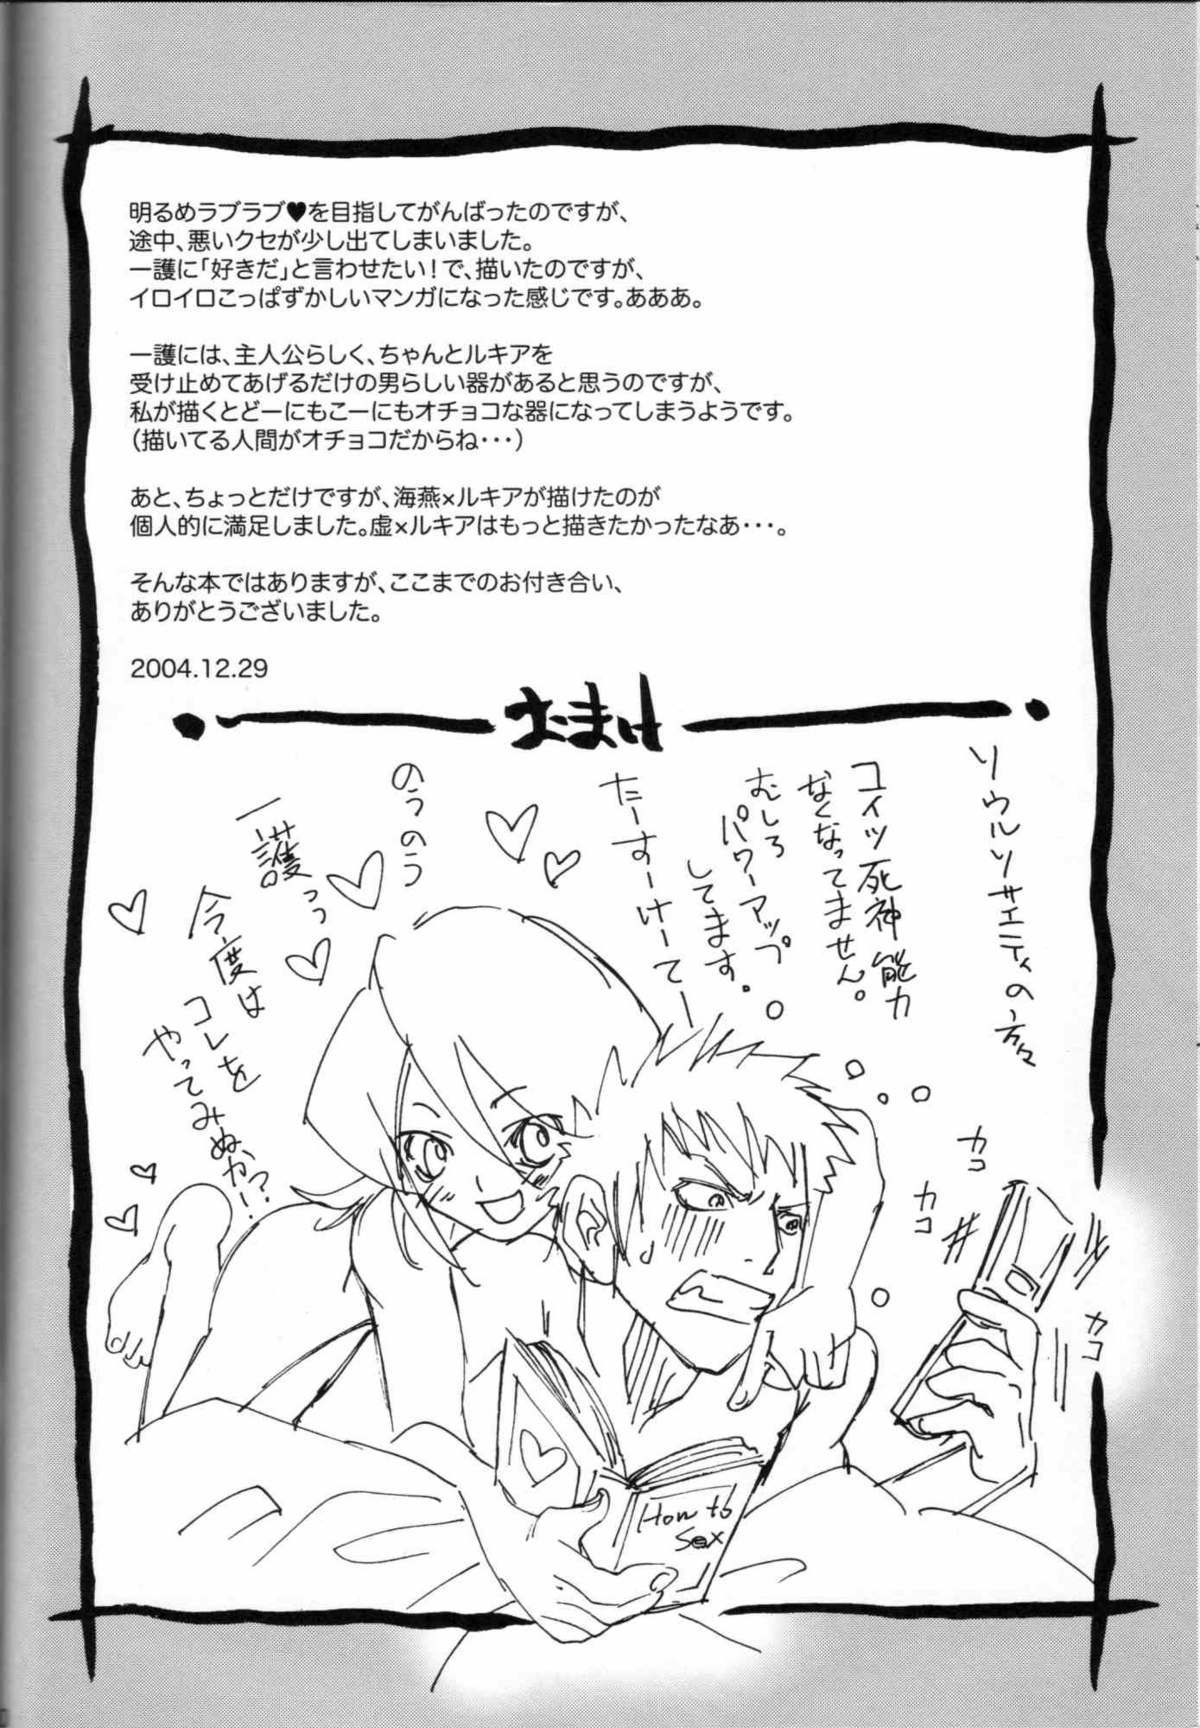 明るめラブラブ♥を目指してがんばったのですが、
途中、悪いクセが少し出てしまいました。
一護に「好きだ」と言わせたい！で、描いたのですが、
イロイロこっぱずかしいマンガになった感じです。あああ。
一護には、主人公らしく、ちゃんとルキアを
受け止めてあげるだけの男らしい器があると思うのですが、
私が描くとどーにもこーにもオチョコな器になってしまうようです。
（描いてる人間がオチョコだからね・・・）
あと、ちょっとだけですが、海燕×ルキアが描けたのが
個人的に満足しました。虚×ルキアはもっと描きたかったなあ・・・。
そんな本ではありますが、ここまでのお付き合い、
ありがとうございました。
2004.12.29
おまけ
ソウルソサエティの方々
コイツ死神能力
なくなってません。
むしろ
パワーアップ
してます。
たーすーけーてー
のうのう
一護っっ
今度は
コレを
やってみぬか!?
カコ
カコ
カコ
How to
Sex